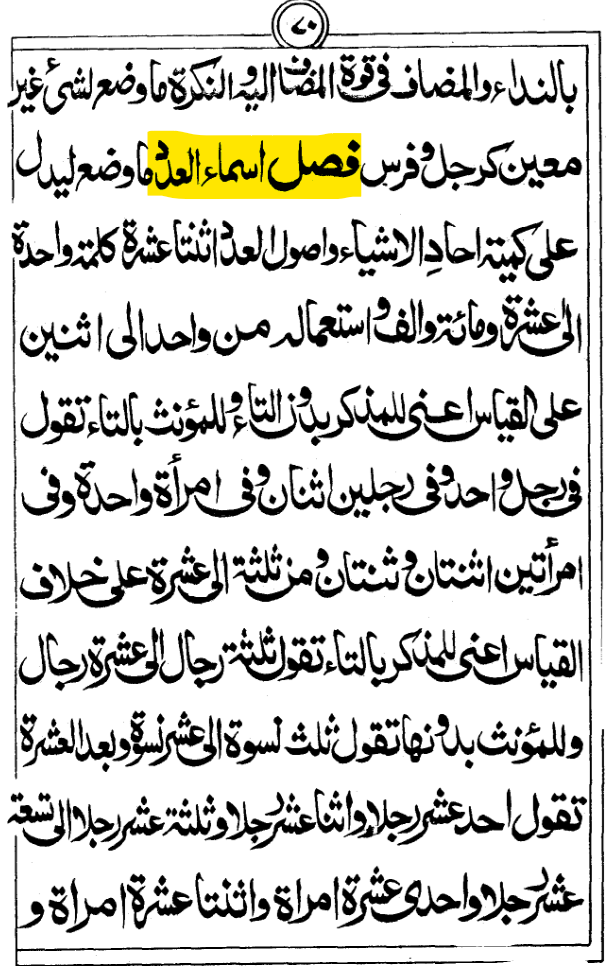 ٧٠
بالنداء والمضاف فی قوة المضاف الیہ والنکرة ماوضع لشئ غیر
معین کرجل وفرس فصل اسماء العدد ماوضع لیدل
علی کمیتہ احادِ الاشیاء واصول العدد اثنتا عشرة کلمتہ واحدة
الیٰ عشرة ومائة والف و استعمالہ من واحد الی اثنین
علی القیاس اعنی للمذکر بدون التاء وللمؤنث بالتاء تقول
فی رجل واحد وفی رجلین اثنان وفی امرأة واحدة وفی
امرأتین اثنتان و ثنتان ومن ثلثة الی عشرة علی خلاف
القیاس اعنی للمذکر بالتاء تقول ثلثة رجال الی عشرة رجال
وللمؤنث بدونها تقول ثلث نسوة الی عشر نسوة وبعد العشرة
تقول احد عشر رجلا واثنا عشر رجلا وثلثة عشر رجلا الی تسعة
عشر رجلا واحدی عشرة امراة واثنتا عشرة امراة و